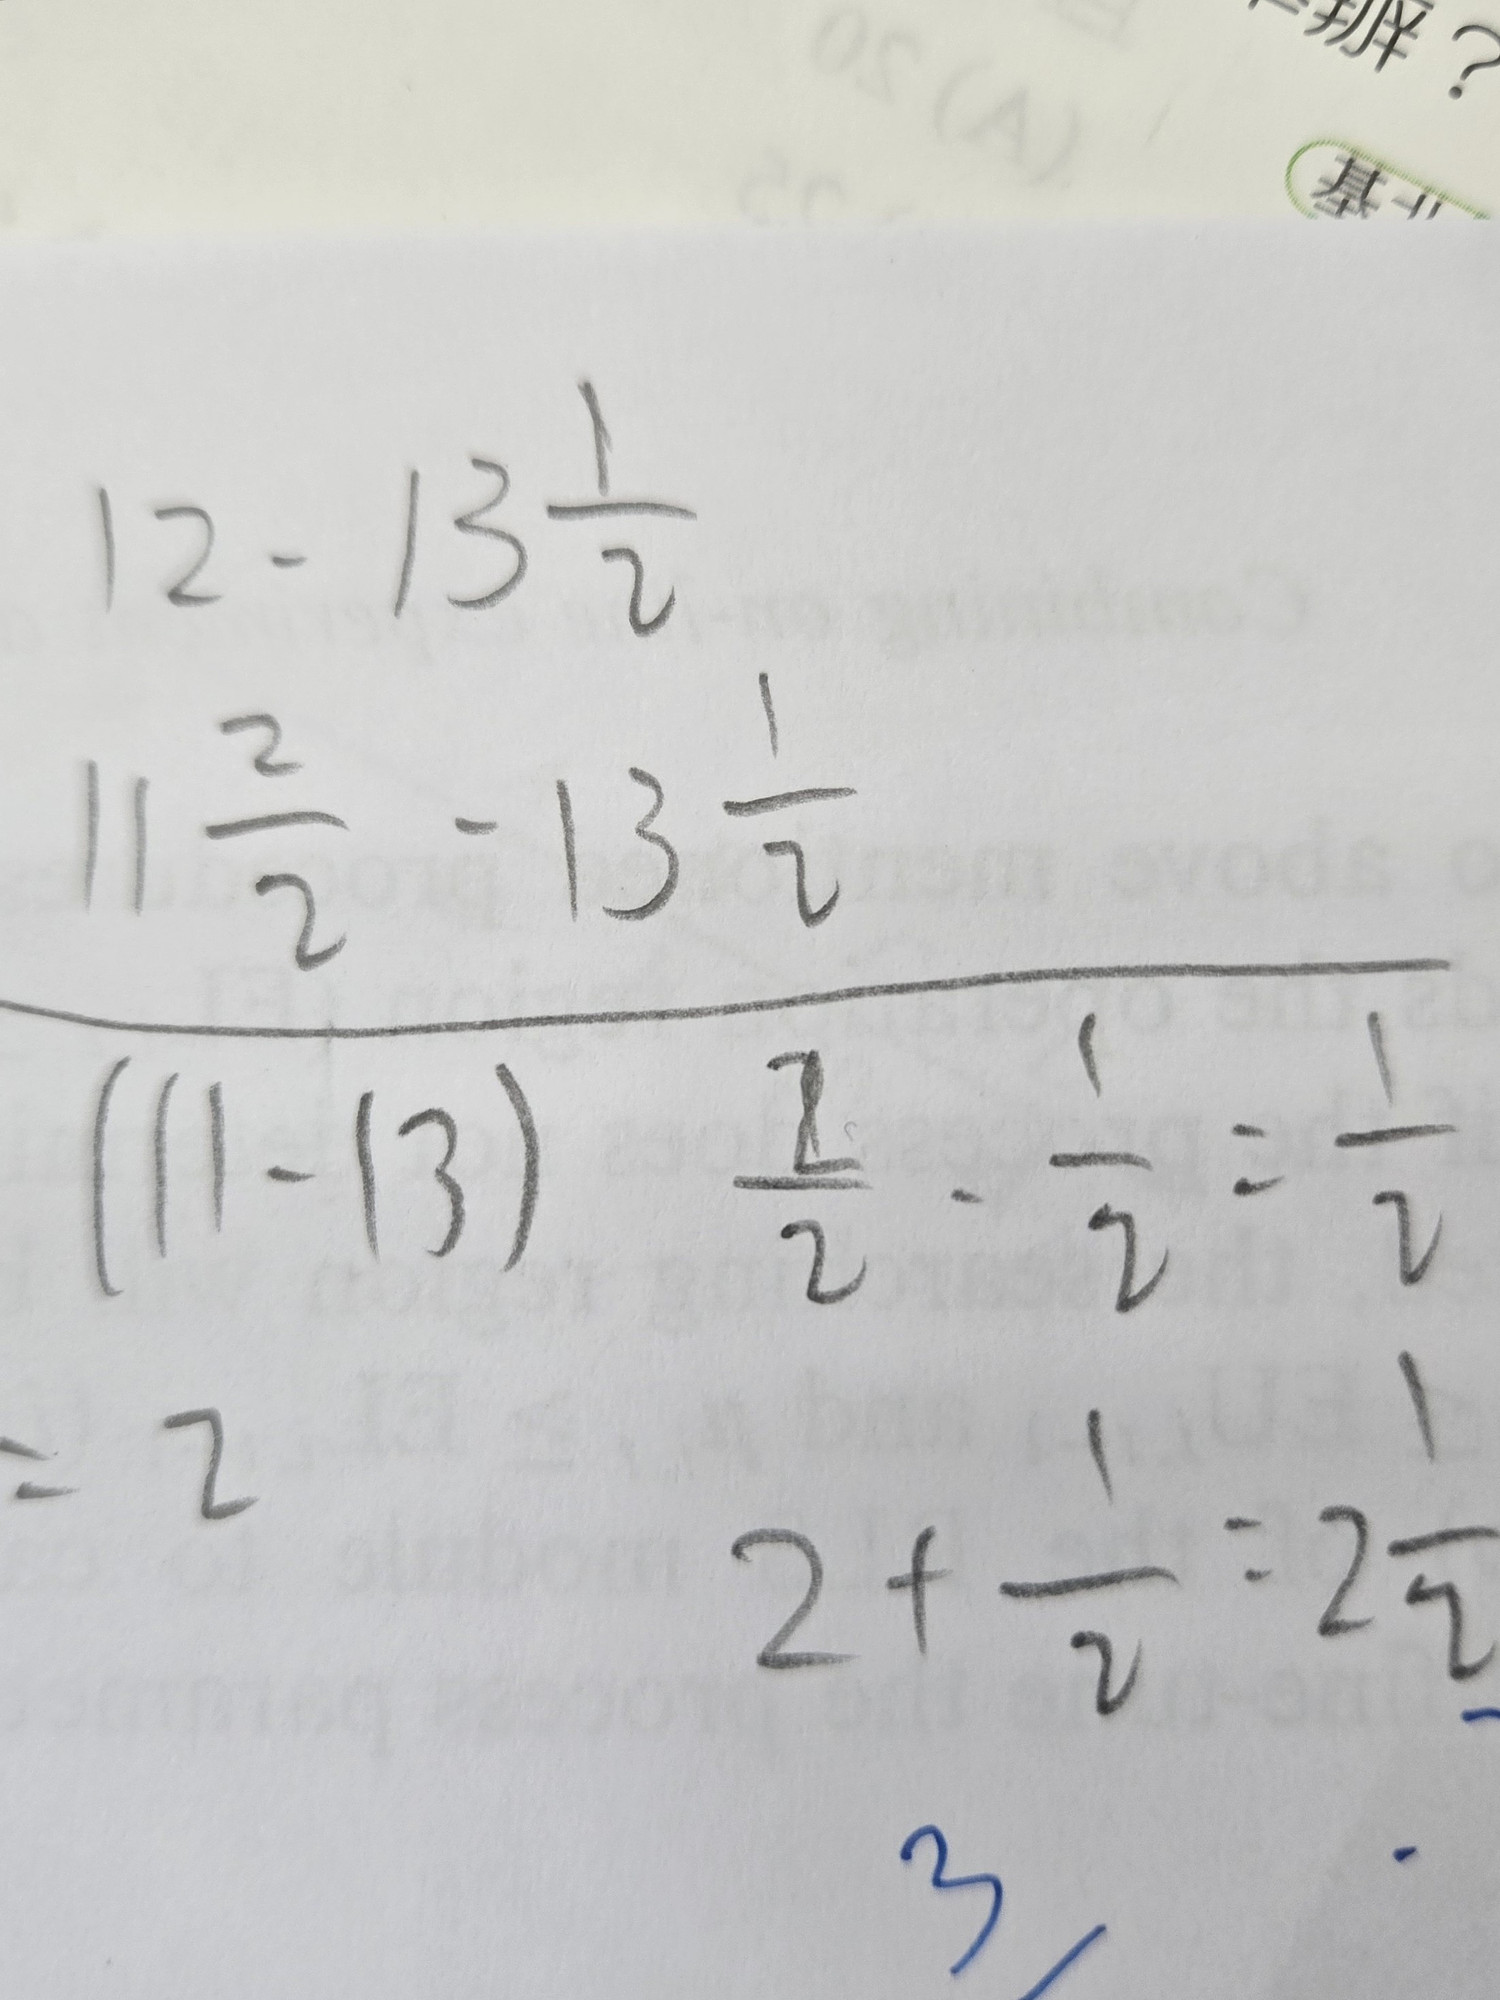 辦？
基
12 - 13 1/2
11 2/2 - 13 1/2
(11-13) 2/2 - 1/2 = 1/2
= 2
2 + 1/2 = 2 1/2
3